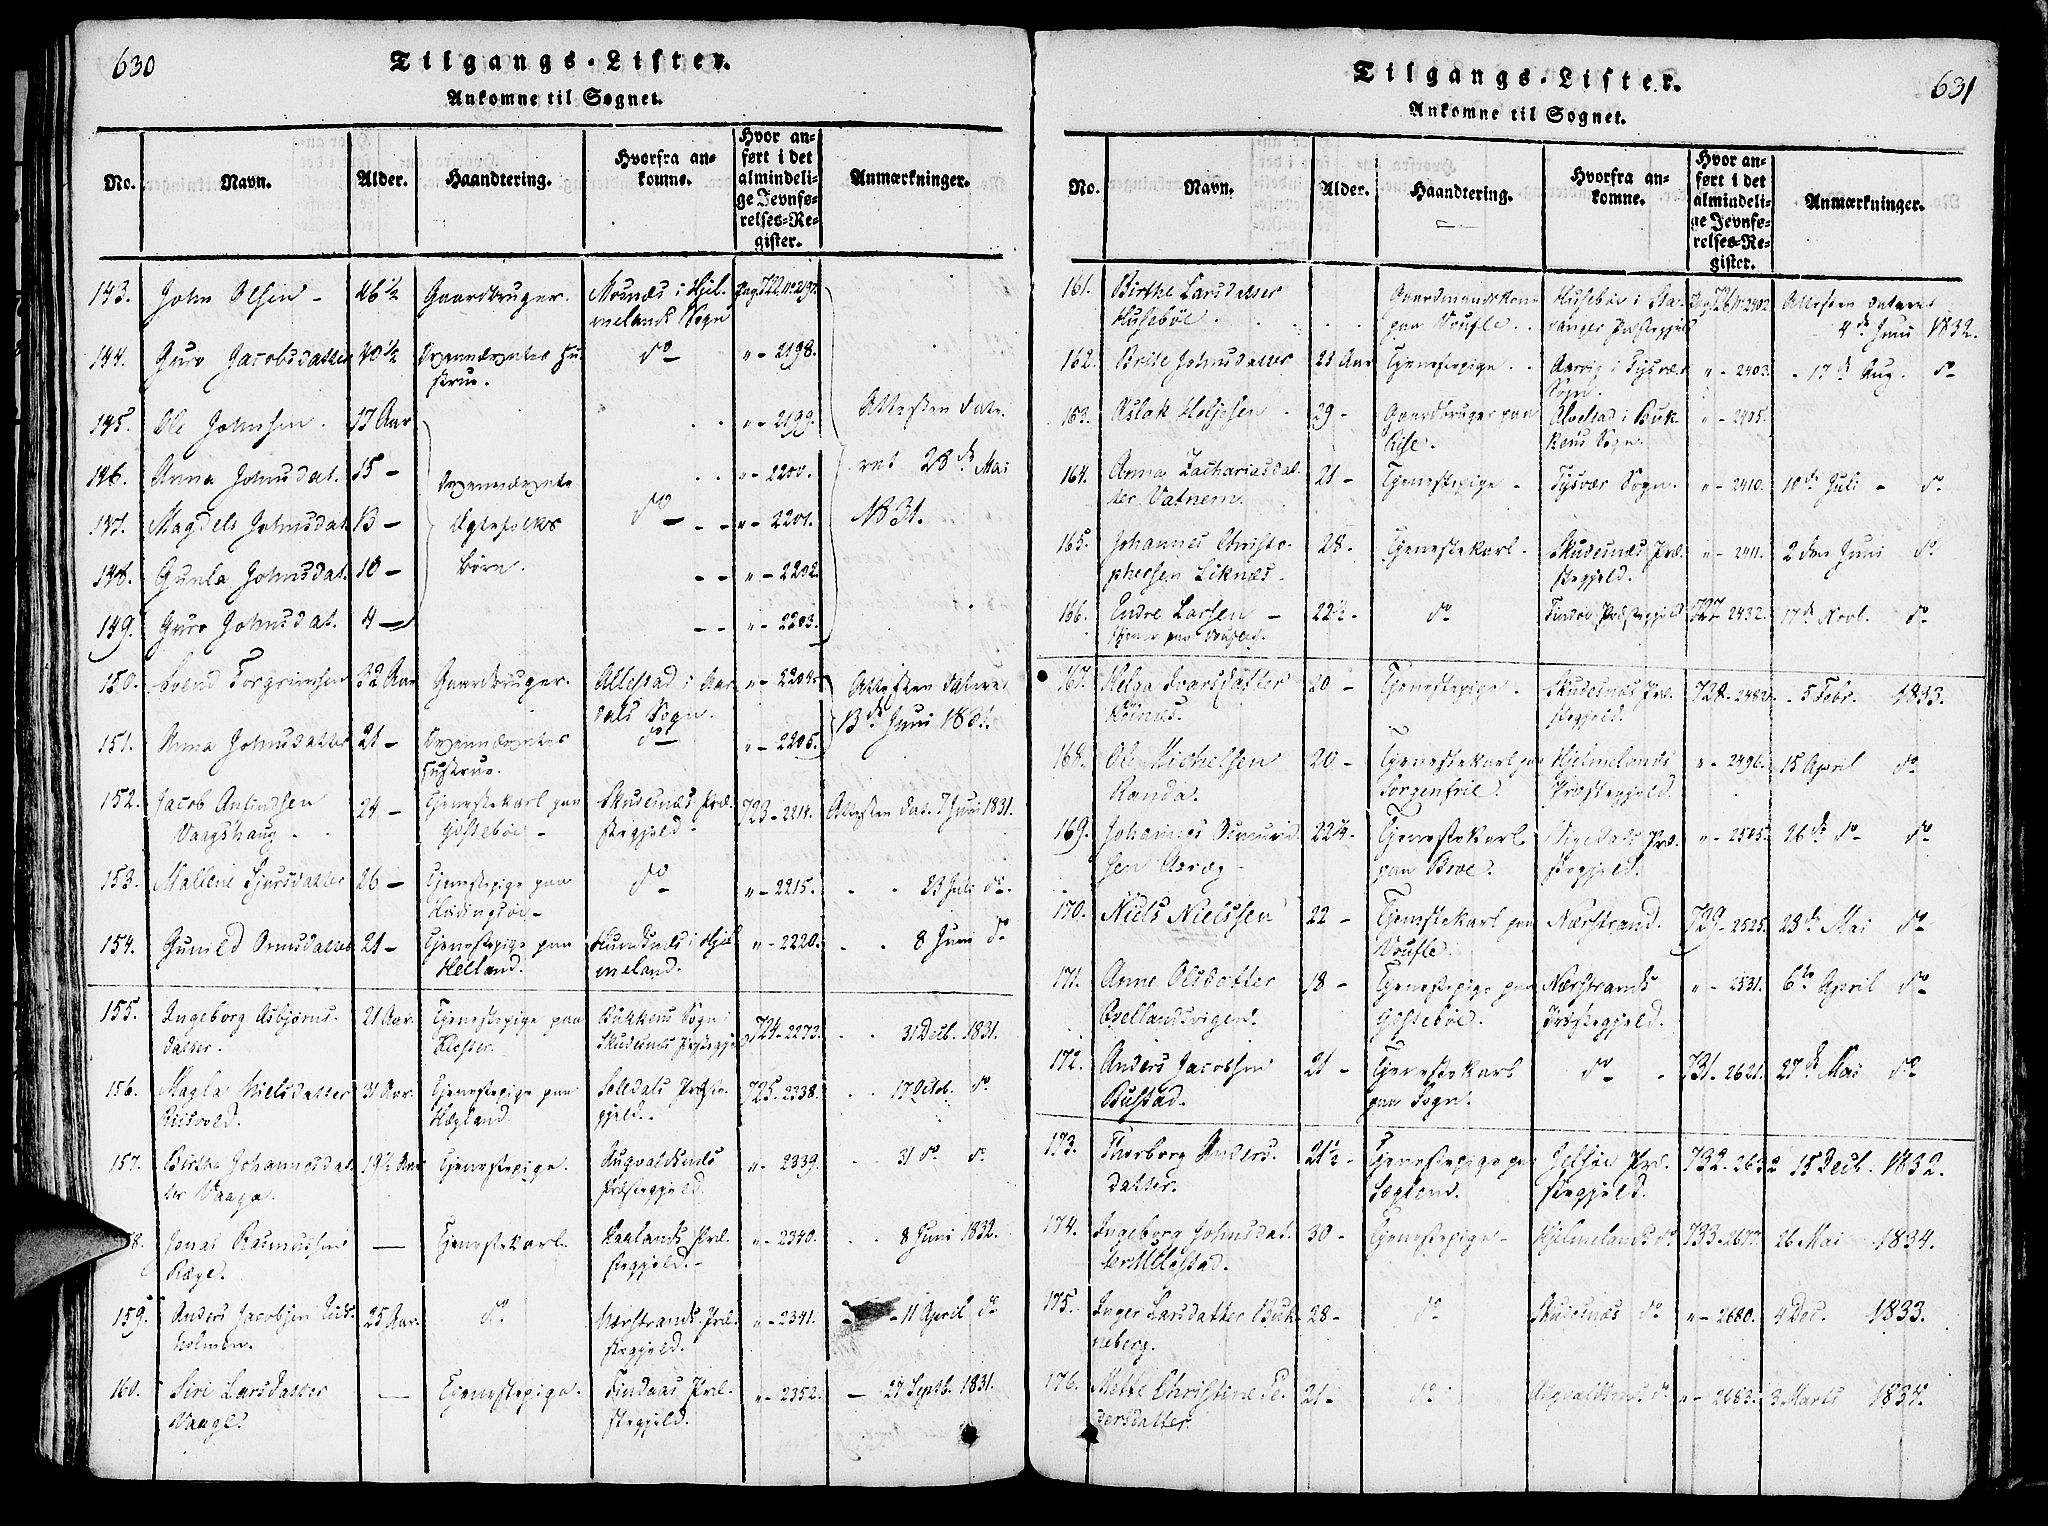 630
Tilgangs-Lister.
Ankomne til Sognet.
No. Navn. Alder. Haandtering. Hvorfra ankomne. Hvor anført i det almindelige Jevnførelses-Register. Anmærkninger.
143. John Olsen - 46 1/2 Gaardbruger. Mosnæs i Hjel-
melands Sogn Pag. 722. No 2197.
144. Guro Jacobsdatter 40 1/2 Ovennævntes Hu-
strue. do " - 2198.
145. Ole Johnsen. 17 Aar " - 2199. Attesten date-
146. Anna Johnsdat. 15 - Ovennævnte " - 2200. ret 28de Mai
147. Magdele Johnsdat. 13 - Ægtefolks do " - 2201. 1831.
148. Gunla Johnsdat. 10 - Børn. " - 2202.
149. Guro Johnsdat. 4 - " - 2203.
150. Svend Torgrimsen 32 Aar Gaardbruger. Allestad i Aar-
dals Sogn. " - 2204. Attesten dateret
13de Juni 1831.
151. Anna Johnsdatter 21 - Ovennævntes
Hustrue. do " - 2205.
152. Jacob Anlindsen
Vaagshaug - 24 - Tjenestekarl paa
Gjostebøe - Skudesnæs Præ-
stegjeld. 723 - 2214. Attesten dat. 7 Juni 1831.
153. Mallene Sjursdatter 26 - Tjenestepige paa
do " - 2215. " " 23 Juli do.
154. Gunild Ormsdatter 21 - Tjenestepige paa
Helland. i Hjel-
meland. " - 2220. " " 8 Juni do
155. Ingeborg Asbjørns-
datter. 21 Aar. Tjenestepige paa
Kloster. Bukkens Sogn i
Skudesnæs Præstegjeld 724 - 2273. " " 31 Decb. 1831.
156. Magla Nielsdatter
31 Aar. Tjenestepige paa
Hægland. Præste-
gjeld. 725 - 2338. " " 17 Octob. do
157. Birthe Johannesdat-
ter Vaage 19 1/2 Aar Tjenestepige. Augvaldsnæs
Præstegjeld. " - 2339. " 31 do do
158. Jonas Rasmussen
Ræge. - Tjenestekarl. Haalands Præ-
stegjeld. " - 2340. " " 8 Juni 1832.
159. Anders Jacobsen
holmen. 25 Aar. do. Nærstrands Præ-
stegjeld. " - 2341. 11 April do
160. Siri Larsdatter
Vaage. - Tjenestepige. Findaas Præ-
stegjeld. " - 2352. - 27 Septb. 1831.
631
Tilgangs-Lister.
Ankomne til Sognet.
No. Navn. Alder. Haandtering. Hvorfra ankomne. Hvor anført i det almindelige Jevnførelses-Register. Anmærkninger.
161. Birthe Larsdatter
Husebøe. Gaardmandskone
paa Voufle. Husebøe i Sta-
vanger Præstegjeld Pag. 726. No 2402. Attesten dateret
4de Juni 1832.
162. Brite Johnsdatter 23 Aar Tjenestepige. Aarvig i Tysvær
Sogn. " - 2403. - 17de Aug. do
163. Aslak Heljesen - 29 - Gaardbruger paa
i Buk-
kens Sogn. " - 2405.
164. Anna Zachariasdat-
ter Vatnem. 21 - Tjenestepige - Tysvær Sogn. " - 2410. 10de Juli - do
165. Johannes Christo-
phersen Liknæs. 28. Tjenestekarl. Skudesnæs Præ-
stegjeld. " - 2411. 2den Juni do
166. Endre Larsen -
22 1/2 - do Præstegjeld 727 - 2432. 17de Novb. do
167. Helga Ivarsdatter
20 - Tjenestepige. Skudesnæs Præ-
stegjeld. 728 - 2482. - 5 Febr. 1833.
168. Ole Michelsen
Randa. 20 - Tjenestekarl paa
Sorgenfrie. Hjelmelands
Præstegjeld. " - 2496. 15 April do
169. Johannes
22 1/4 - Tjenestekarl
paa Broe. Præ-
stegjeld. " - 2505. 26de do do
170. Niels Nielssen 22 - Tjenestekarl paa
Voufle. Nærstrand. 729 - 2525. 28de Mai do
171. Anne Olsdatter
18 - Tjenestepige paa
Gjostebøe. Nærstrands
Præstegjeld. " - 2531. 6te April do
172. Anders Jacobsen
Bustad. 21 - Tjenestekarl
paa Sogn. do - 731 - 2621. 27de Mai do
173. Thorborg Anders-
datter. 21 1/2 - Tjenestepige paa
Jelsøe Præ-
stegjeld. 732 - 2632 15 Decb. 1832.
174. Ingeborg Johnsdat-
ter Melgstad. 30 - Tjenestepige - Hjelmelands do 733 - 2677. 26 Mai 1834.
175. Inger Larsdatter Buk-
neberg. 28 - do Skudesnæs do " - 2680. 4 Dec. 1833.
176. Mette Christine Pe-
dersdatter. 21 - do. do " - 2683. 3 Marts